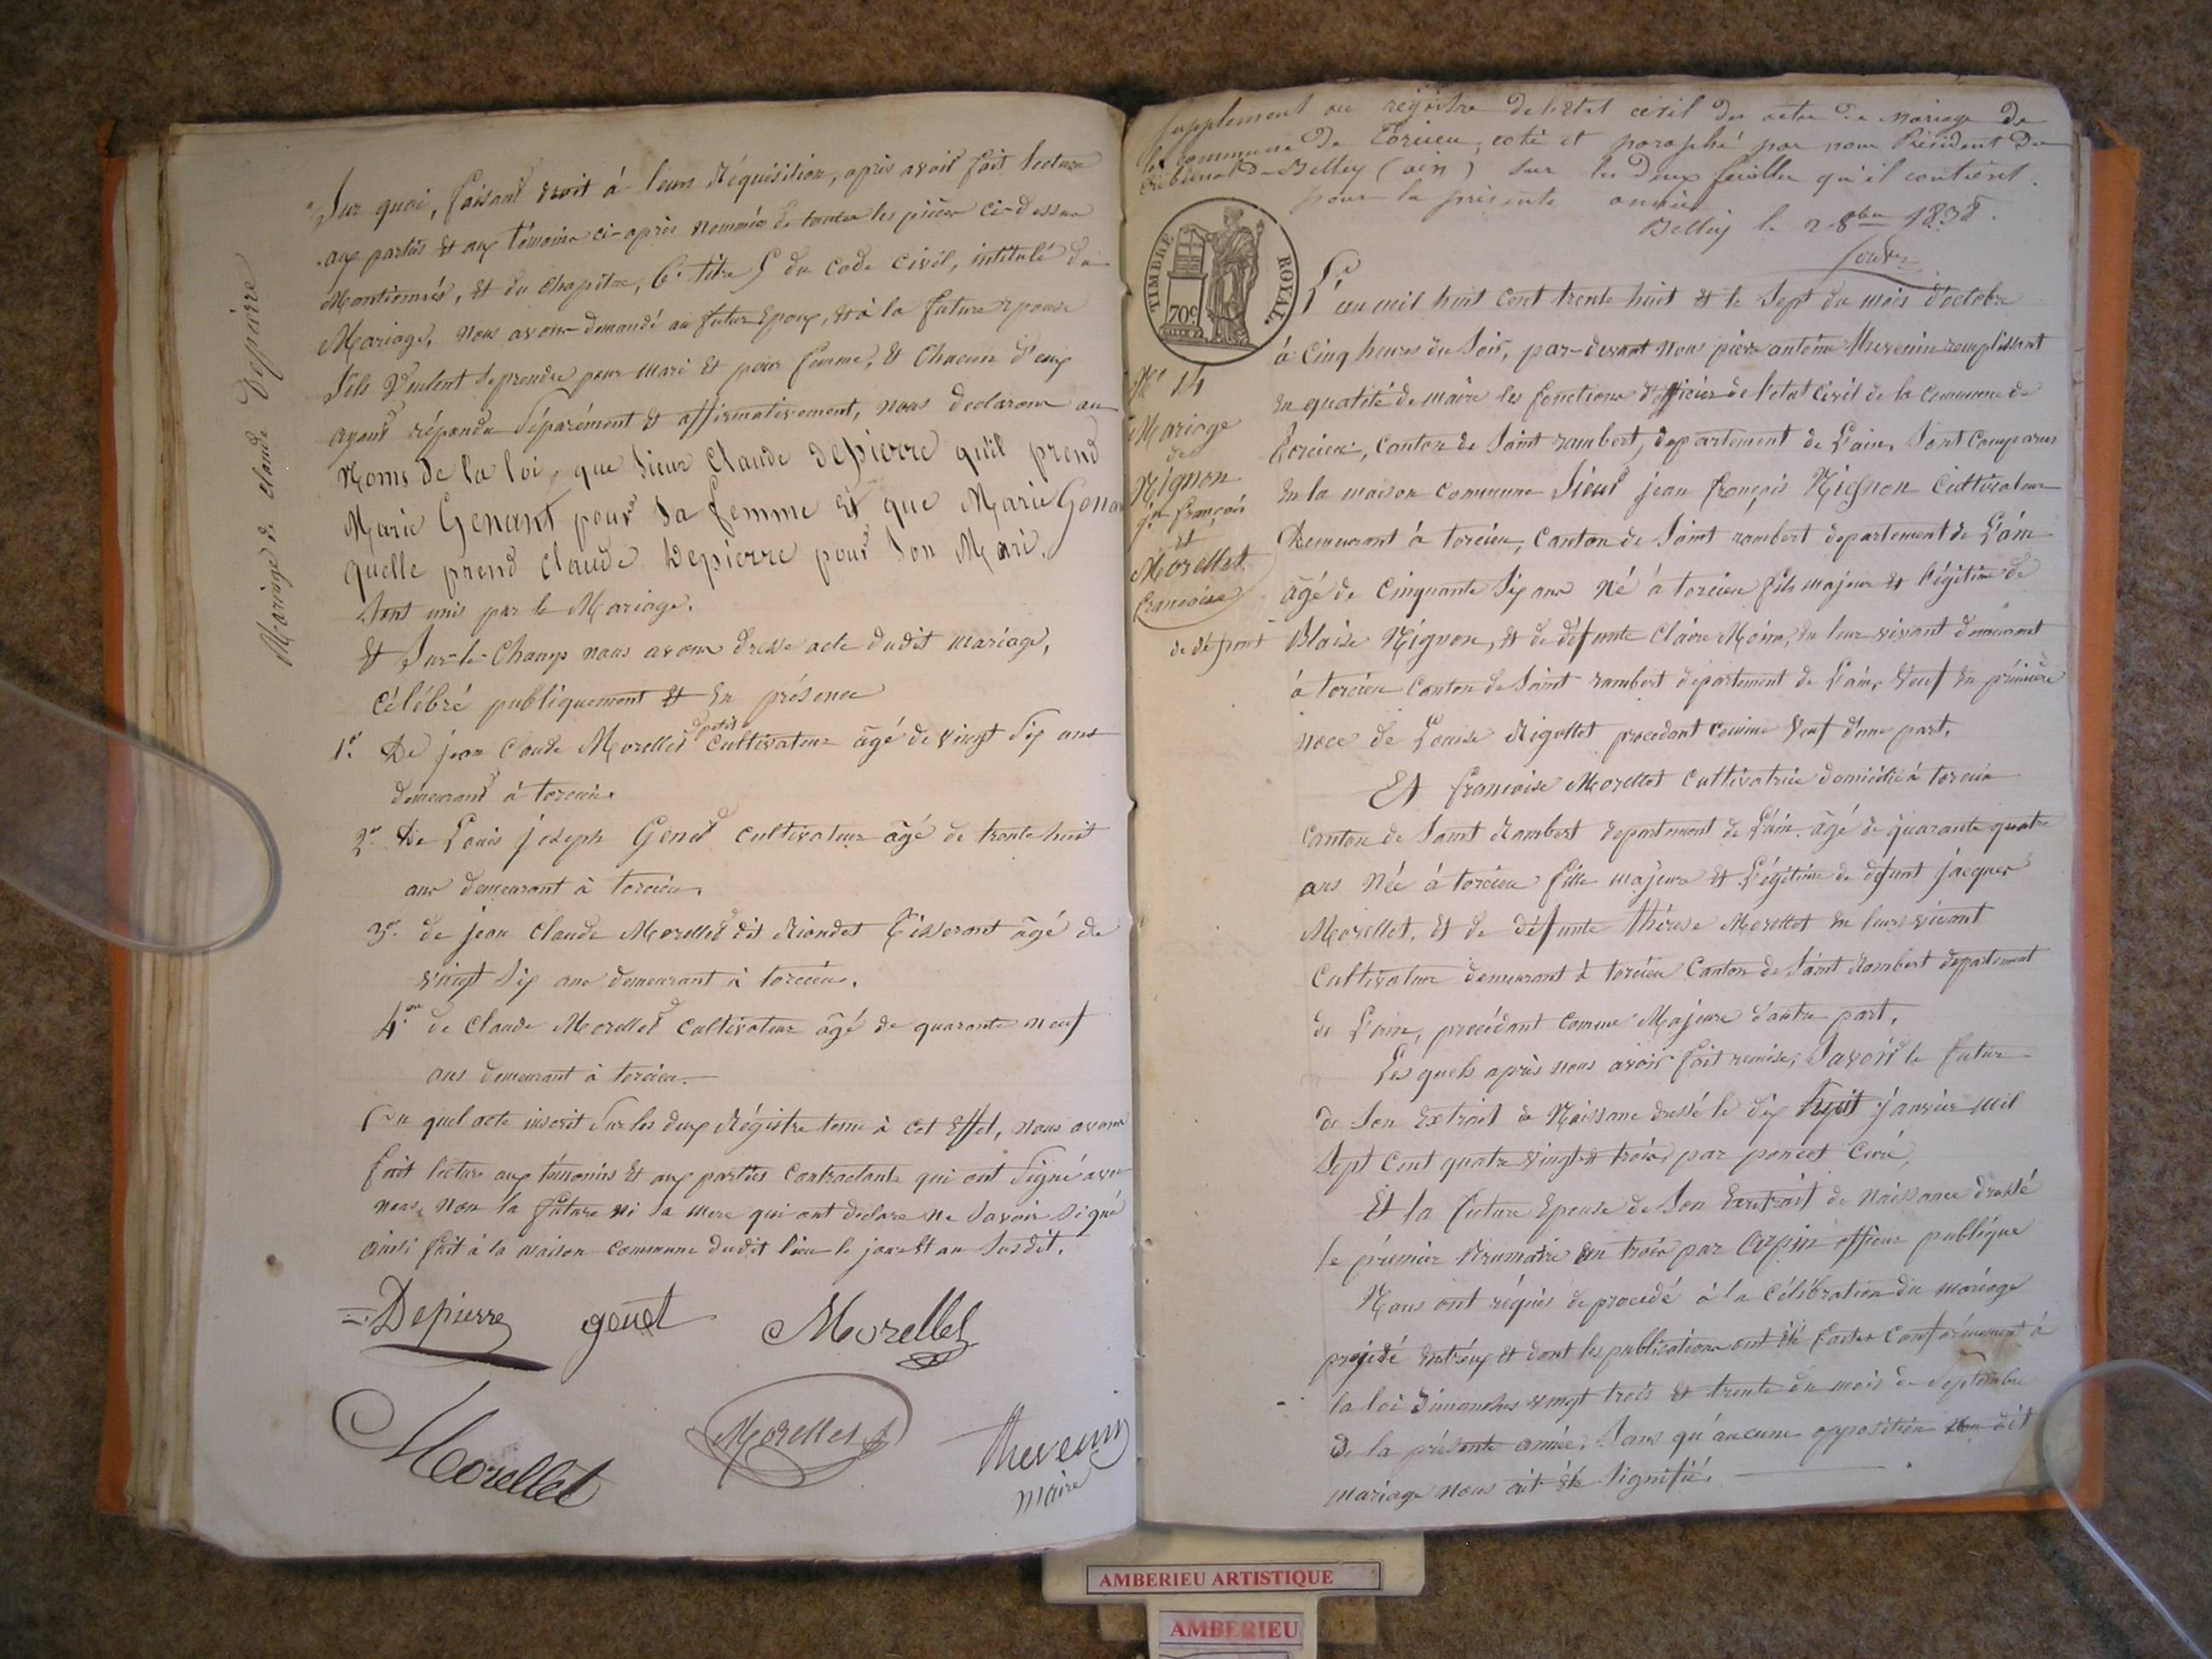 Mariage de claude Depierre
Sur quoi, faisant droit à leur Réquisition, après avoir fait lecture
aux parties et aux témoins ci-après nommés de toutes les pièces ci-dessus
Mentionnés, et du Chapitre, 6e titre 5 du Code Civil, intitulé du
Mariage, nous avons demandé au futur Epoux, et à la future epouse
s'ils Veulent se prendre pour mari et pour femme, et Chacun d'eux
ayant répondu séparément et affirmativement, nous declarons au
Noms de la loi, que sieur Claude Depierre qu'il prend
Marie Genant pour sa femme et que Marie Genan
quelle prend Claude Depierre pour son Mari,
sont unis par le Mariage.
et sur-le-Champ nous avons dressé acte dudit mariage,
célébré publiquement et en présence
1er De jean Coude Morellet petit cultivateur âgé de vingt six ans
demeurant à torcieu.
2e De Louis joseph Genet cultivateur âgé de trente huit
ans demeurant à torcieu,
3e de jean Claude Morellet dit Riondet tisserant âgé de
vingt six ans demeurant à torcieu.
4me de Claude Morellet cultivateur âgé de quarante neuf
ans demeurant à torcieu.
Du quel acte inscrit sur les deux Régistre tenu à cet Effet, nous avons
fait lecture aux témoins et aux parties Contractants qui ont signé avec
nous, non la future ni sa mere qui ont declaré ne savoir signé
ainsi fait à la maison commune dudit lieu le jour et an susdit.
Depierre genet Morellet
Morellet Morellet thevenin
maire
supplément au registre de l'état civil des actes de mariage de
la commune de Torcieu, coté et paraphé par nous Président du
tribunal de Belley (ain) sur les deux feuilles qu'il contient.
pour la présente année
Belley le 2 8bre 1838.
TIMBRE ROYAL.
70c
No 14
Mariage
de
Mignon
jn françois
et
Morellet
francoise
de défunt
L'an mil huit cent trente huit et le sept du mois d'octobre
à cinq heures du soir, par-devant nous pierre antoine thevenin remplissant
en qualité de maire les fonctions d'officier de l'etat civil de la commune de
torcieu, canton de saint rambert, departement de L'ain, sont comparus
en la maison commune sieur jean françois Mignon cultivateur
Demeurant à torcieu, Canton de saint rambert departement de L'ain
âgé de cinquante six ans né à torcieu fils majeur et légitime de
Blaise Mignon, et de défunte Claire Moine, en leur vivant demeurant
à torcieu canton de saint rambert departement de L'ain, veuf en première
noce de Louise Rigollet procedant comme veuf d'une part,
Et francoise Morellet cultivatrice domicilié à torcieu
canton de saint Rambert departement de L'ain. âgé de quarante quatre
ans Née à torcieu fille majeure et Légitime de défunt jacques
Morellet, et de défunte thérèse Morellet en leurs vivant
cultivateur demeurant à torcieu Canton de saint Rambert departement
de L'ain, procédant comme Majeure d'autre part,
Les quels après nous avoir fait remise, savoir le futur
de son extrait de Naissance dressé le dix huit janvier mil
sept cent quatre vingt trois, par poncet Curé,
Et la future Epouse de son Extrait de naissance dressé
le prémier Brumaire an trois par Carpin officier publique
Nous ont réquis de procedé à la célébration du mariage
projeté entr'eux et dont les publications ont été faites Conformément à
la loi dimanches vingt trois et trente du mois de septembre
de la présente année. sans qu'aucune opposition au dit
mariage nous ait été signifié.
AMBERIEU ARTISTIQUE
AMBERIEU